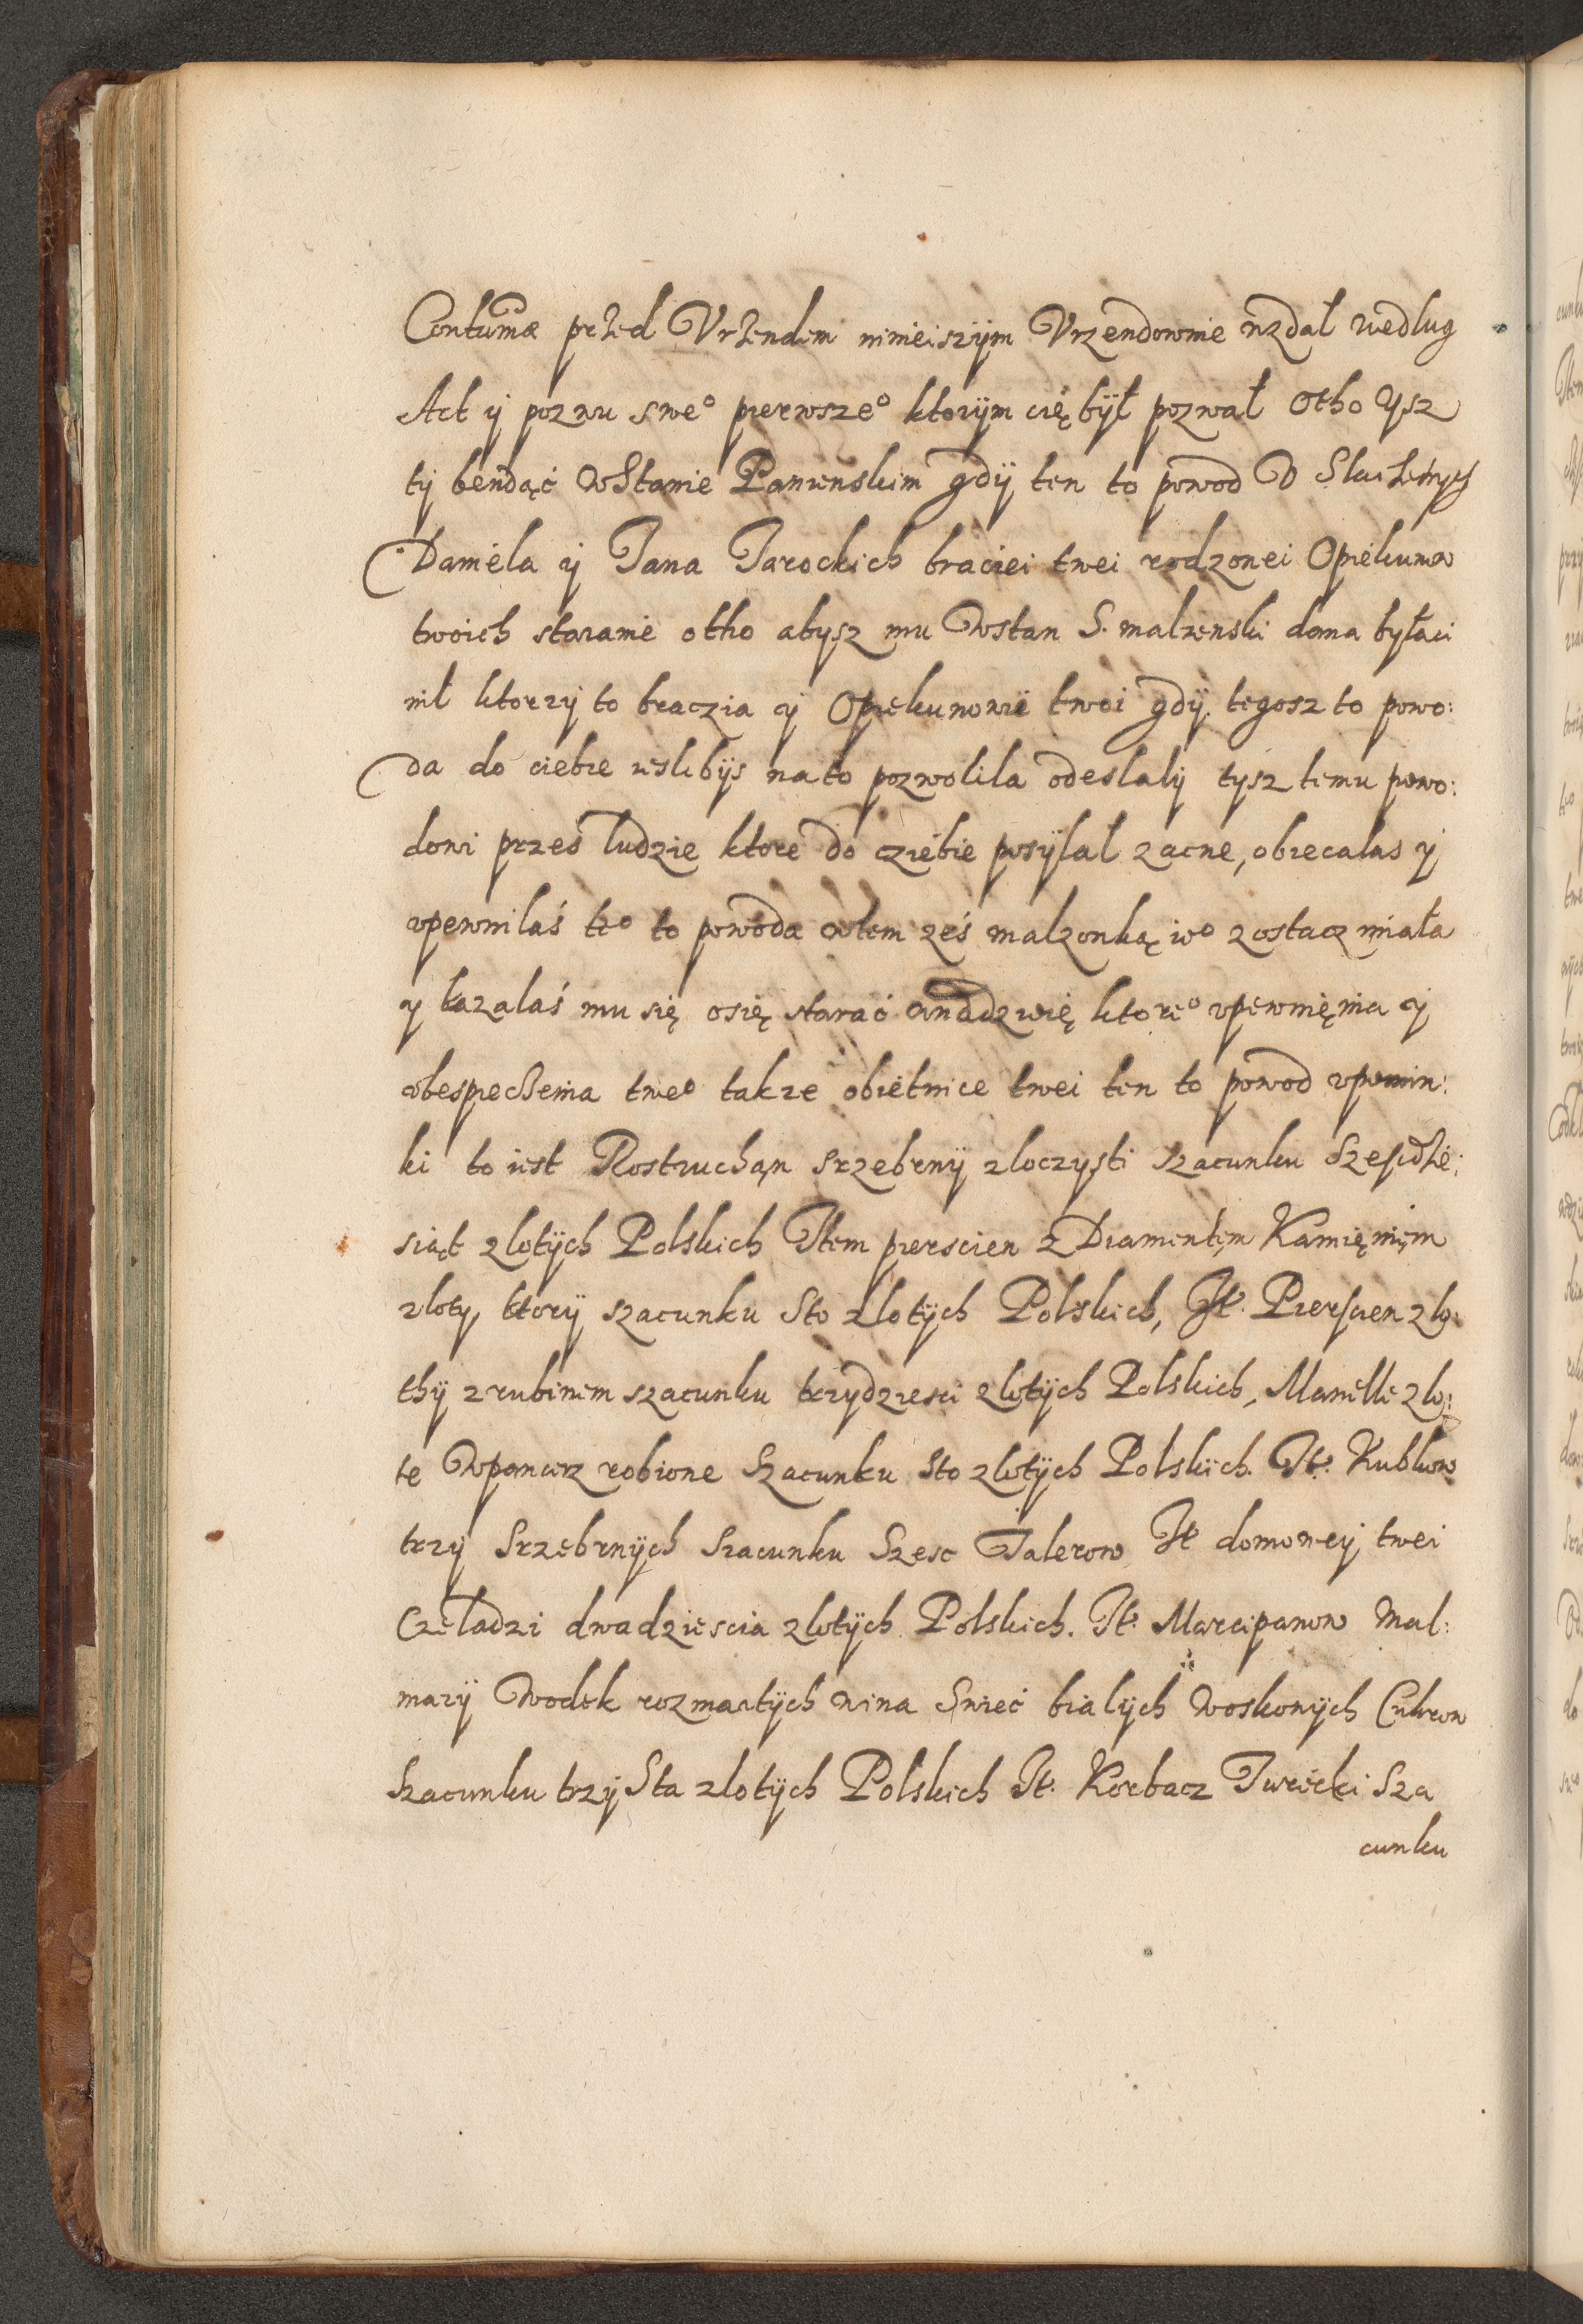 Contumae przed Vrzendem ninieiszÿm Vrzendownie wzdał wedlug
Act ÿ pozwu sweº pierwszeº ktorÿm cię bÿł pozwał otho ysz
tÿ bendąć w Stanie Panienskim gdÿ ten to powod V Slachetnych
Daniela ÿ Jana Jarockich braciei twei rodzonei Opiekunow
twoich staranie otho abysz mu w stan S. malzenski dana była ci
nił ktorzÿ to braczia ÿ Opiekunowie twoi gdÿ tegosz to powo:
da do ciebie iesli bÿs na to pozwolila odeslalÿ tÿsz temu powo:
dowi przes ludzie ktore do cziebie posÿlał zacne, obiecalas ÿ
vpewnilaś teº to powoda o tem ześ malzonką ieº zostacz miała
ÿ kazalaś mu się o się starać ktoreº vpewnięnia ÿ
obespieczenia tweº takze obietnice twei ten to powod vpomin:
ki to iest Roztruchan srzebrnÿ zloczysti szacunku Szescdzie:
siąt zlotÿch Polskich Item pierscien z Diamentem Kamięniem
zloty, ktorÿ szacunku Sto zlotÿch Polskich, It. Pierscien zlo:
thÿ z rubinem szacunku trzydziesci zlotÿch Polskich, Manelle zlo:
te w pancerz robione Szacunku sto zlotÿch Polskich. It. Kubkow
trzÿ Srzebrnÿch Szacunku Szesc Talerow It domowey twei
Czeladzi dwadziescia zlotÿch Polskich. It. Marcipanow Mal:
mazÿ Wodek rozmaitÿch wina Swieć bialÿch Woskowÿch Cukrow
Szacunku trzÿ Sta zlotÿch Polskich It. Korbacz Turecki Sza
cunku